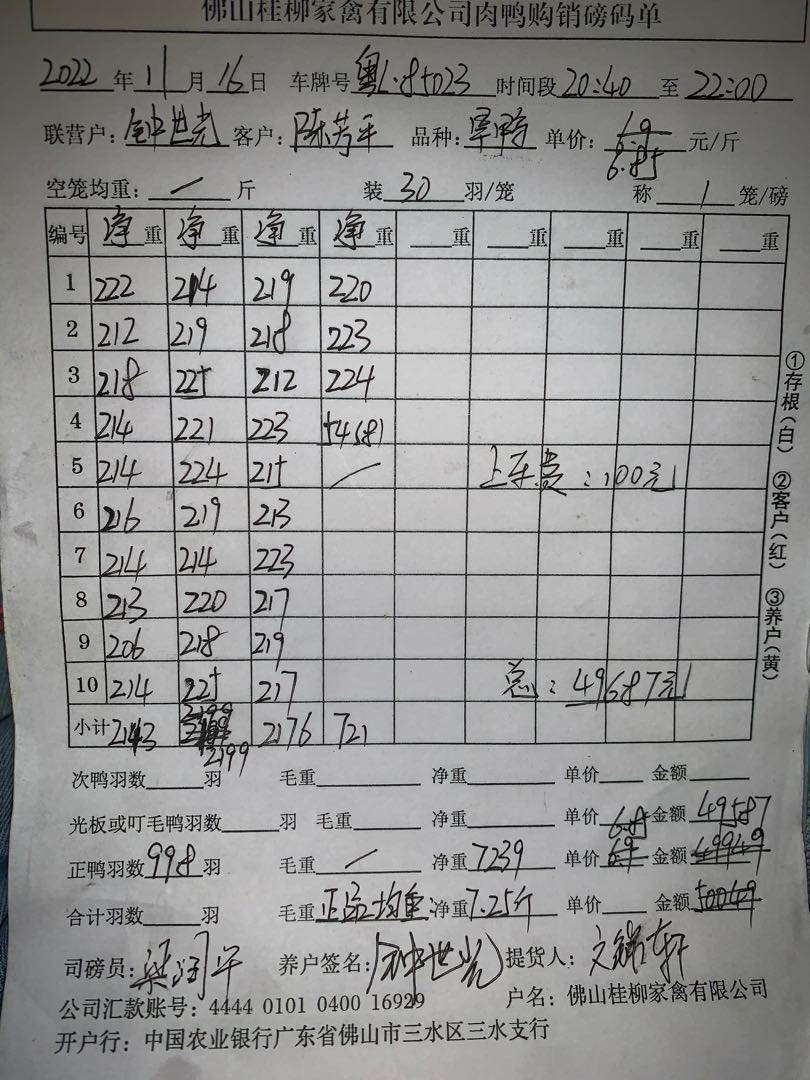 佛山桂柳家禽有限公司肉鸭购销磅码单
2022 年 11 月 16 日 车牌号 粤L·85023 时间段 20:40 至 22:00
联营户: 钟世光 客户: 陈芳平 品种: 单价: 6.9 6.85 元/斤
空笼均重: / 斤 装 30 羽/笼 称 1 笼/磅
编号 净重 净重 净重 净重 重 重 重 重 重
1 222 214 219 220
2 212 219 218 223
3 218 225 212 224
4 214 221 223 54(8)
5 214 224 215 / 上车费:100元
6 216 219 213
7 214 214 223
8 213 220 217
9 206 218 219
10 214 225 217 总:49687元
小计 2143 2199 2199 2176 721
次鸭羽数 羽 毛重 净重 单价 金额
光板或叮毛鸭羽数 羽 毛重 净重 单价 6.85 金额 49587
正鸭羽数 998 羽 毛重 / 净重 7239 单价 6.9 金额 49949
合计羽数 羽 毛重 正品均重: 净重 7.25斤 单价 金额 50049
司磅员: 梁润平 养户签名: 钟世光 提货人:
公司汇款账号: 4444 0101 0400 16929 户名: 佛山桂柳家禽有限公司
开户行: 中国农业银行广东省佛山市三水区三水支行
①存根(白) ②客户(红) ③养户(黄)